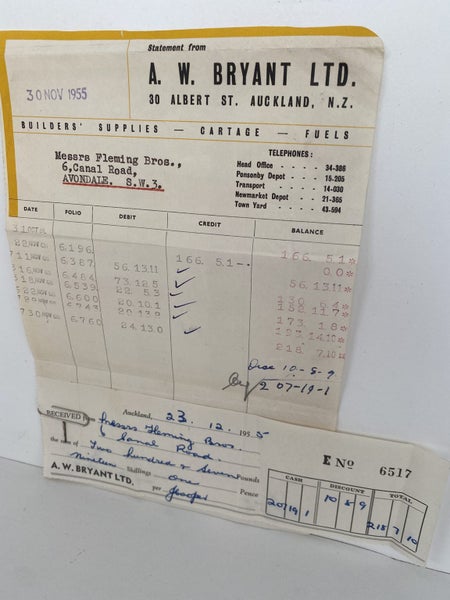 30 NOV 1955
Statement from
A. W. BRYANT LTD.
30 ALBERT ST. AUCKLAND, N.Z.
BUILDERS' SUPPLIES — CARTAGE — FUELS
Messrs Fleming Bros.,
6, Canal Road,
AVONDALE. S.W.3.
TELEPHONES:
Head Office - - - - 34-386
Ponsonby Depot - - 15-205
Transport - - - - 14-030
Newmarket Depot - 21-365
Town Yard - - - - 43-594
DATE FOLIO DEBIT CREDIT BALANCE
31 OCT 166. 5.1*
6.196. 166. 5.1 0.0*
6.387 56. 13.11 56. 13.11*
6.484 73. 12.5
6.539 22. 5.3 152. 11.7*
6.600 20. 10.1 173. 1.8*
6.743 193. 14.10*
6.760 24. 13.0 218. 7.10*
Disc 10-8-9
£207-19-1
RECEIVED from
Auckland, 23. 12. 1955
Messrs Fleming Bros.
6 Canal Road.
the sum of Two hundred & Seven Pounds
Nineteen Shillings One Pence
A. W. BRYANT LTD.
per
E No 6517
CASH DISCOUNT TOTAL
207 19 1 10 8 9 218 7 10